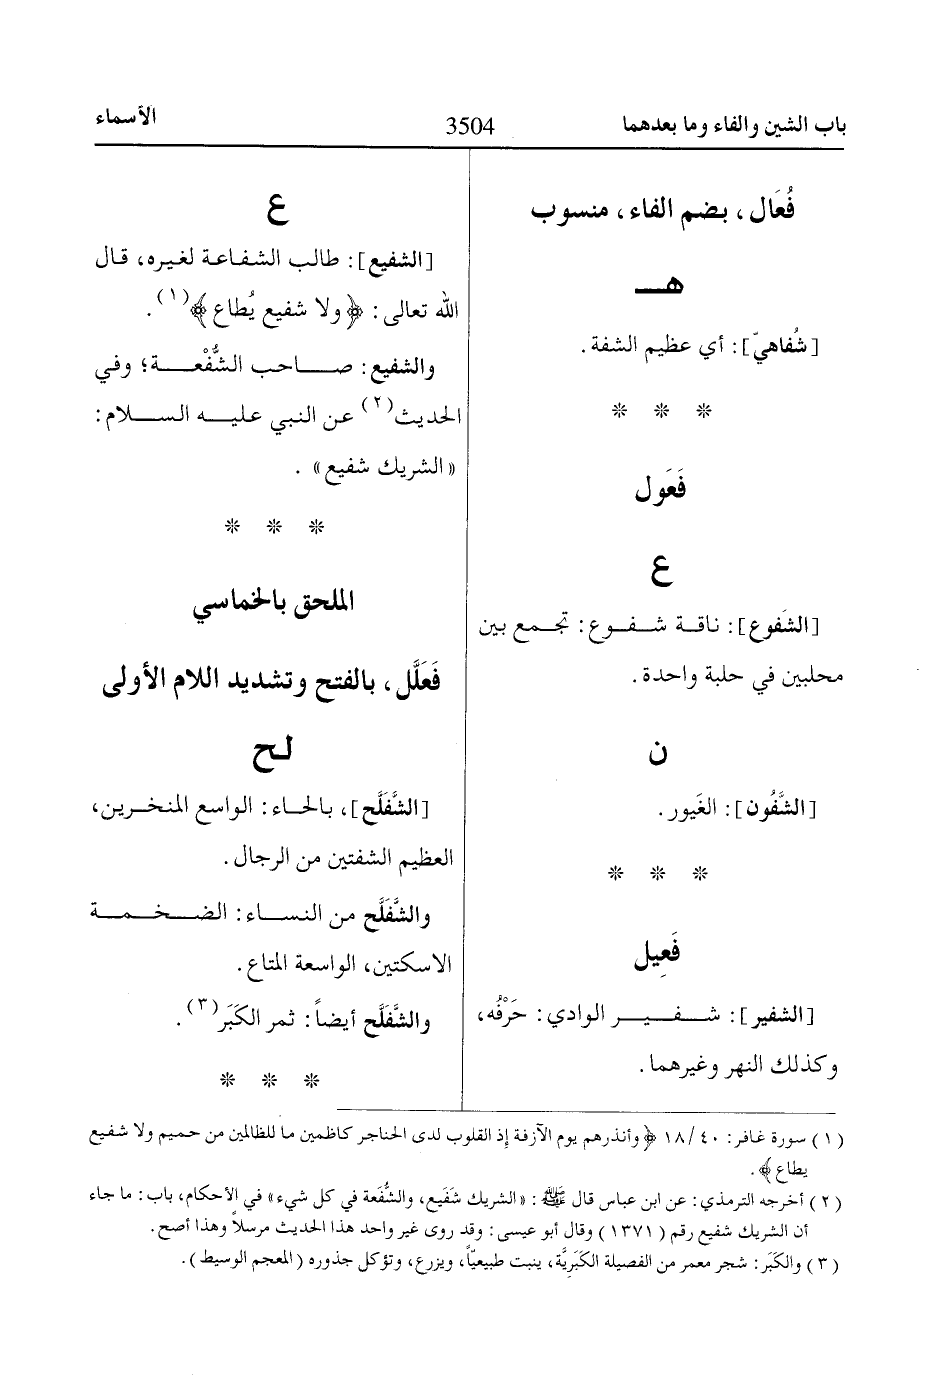 باب الشين والفاء وما بعدهما
3504
الأسماء
فُعَال، بضم الفاء، منسوب
هـ
[شُفاهيّ]: أي عظيم الشفة.
* * *
فَعَول
ع
[الشفوع]: ناقـة شـفـوع: تجـمـع بين
محلبين في حلبة واحدة.
ن
[الشَّفُون]: الغَيور.
* * *
فَعِيل
[الشفير]: شـفـيـر الوادي: حَرْفُه،
وكذلك النهر وغيرهما.
ع
[الشفيع]: طالب الشفاعة لغيره، قال
الله تعالى: ﴿ولا شفيع يُطاع﴾(١).
والشفيع: صـاحب الشُّفْعـة؛ وفي
الحديث(٢) عن النبي عليـه السـلام:
«الشريك شفيع».
* * *
الملحق بالخماسي
فَعَلَّل، بالفتح وتشديد اللام الأولى
لح
[الشَّفَلَّح]، بالحاء: الواسع المنخرين،
العظيم الشفتين من الرجال.
والشَّفَلَّح من النسـاء: الضخـمـة
الاسكتين، الواسعة المتاع.
والشَّفَلَّح أيضاً: ثمر الكَبَر(٣).
* * *
(١) سورة غافر: ٤٠/ ١٨ ﴿وأنذرهم يوم الآزفة إذ القلوب لدى الحناجر كاظمين ما للظالمين من حميم ولا شفيع
يطاع﴾.
(٢) أخرجه الترمذي: عن ابن عباس قال ﷺ: «الشريك شَفيع، والشُّفْعة في كل شيء» في الأحكام، باب: ما جاء
أن الشريك شفيع رقم (١٣٧١) وقال أبو عيسى: وقد روى غير واحد هذا الحديث مرسلاً وهذا أصح.
(٣) والكَبَر: شجر معمر من الفصيلة الكَبَرِيَّة، ينبت طبيعيّاً، ويزرع، وتؤكل جذوره (المعجم الوسيط).